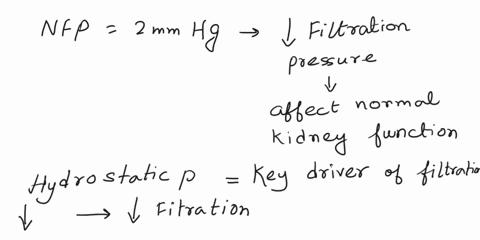 NFP = 2 mm Hg → ↓ Filtration
pressure
↓
affect normal
kidney function
Hydrostatic p = Key driver of filtratio
↓ → ↓ Fitration